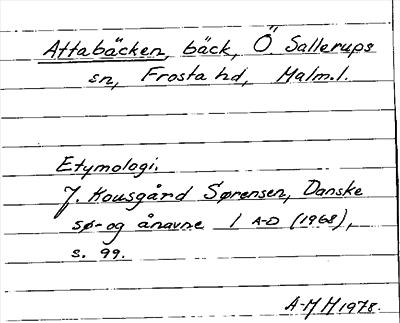 Attabäcken, bäck, Ö. Sallerups
sn, Frosta hd, Malm. l.
Etymologi.
J. Kousgård Sørensen, Danske
sø- og ånavne 1 A-D (1968),
s. 99.
A-M H 1978.